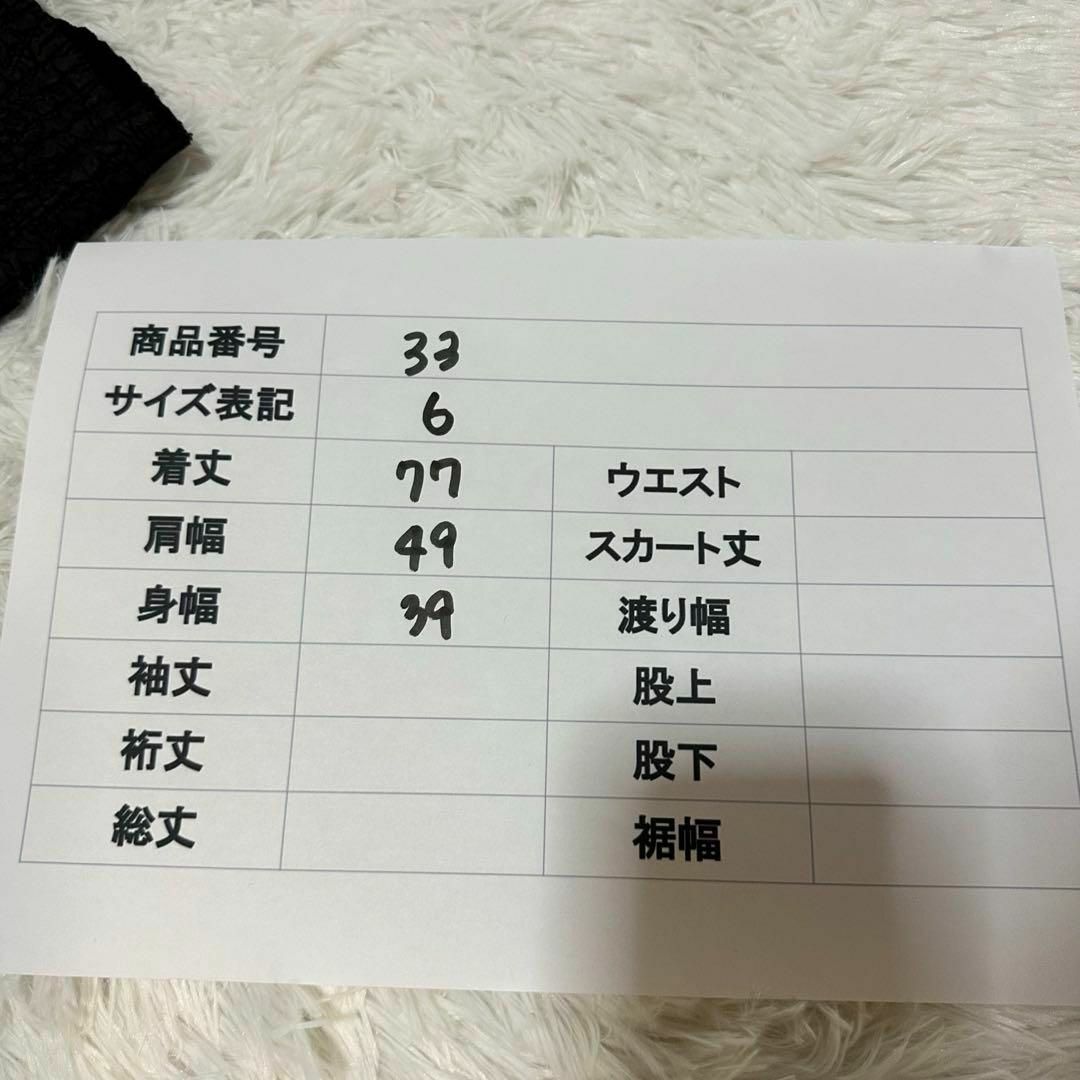 商品番号 33
サイズ表記 6
着丈 77 ウエスト
肩幅 49 スカート丈
身幅 39 渡り幅
袖丈 股上
裄丈 股下
総丈 裾幅